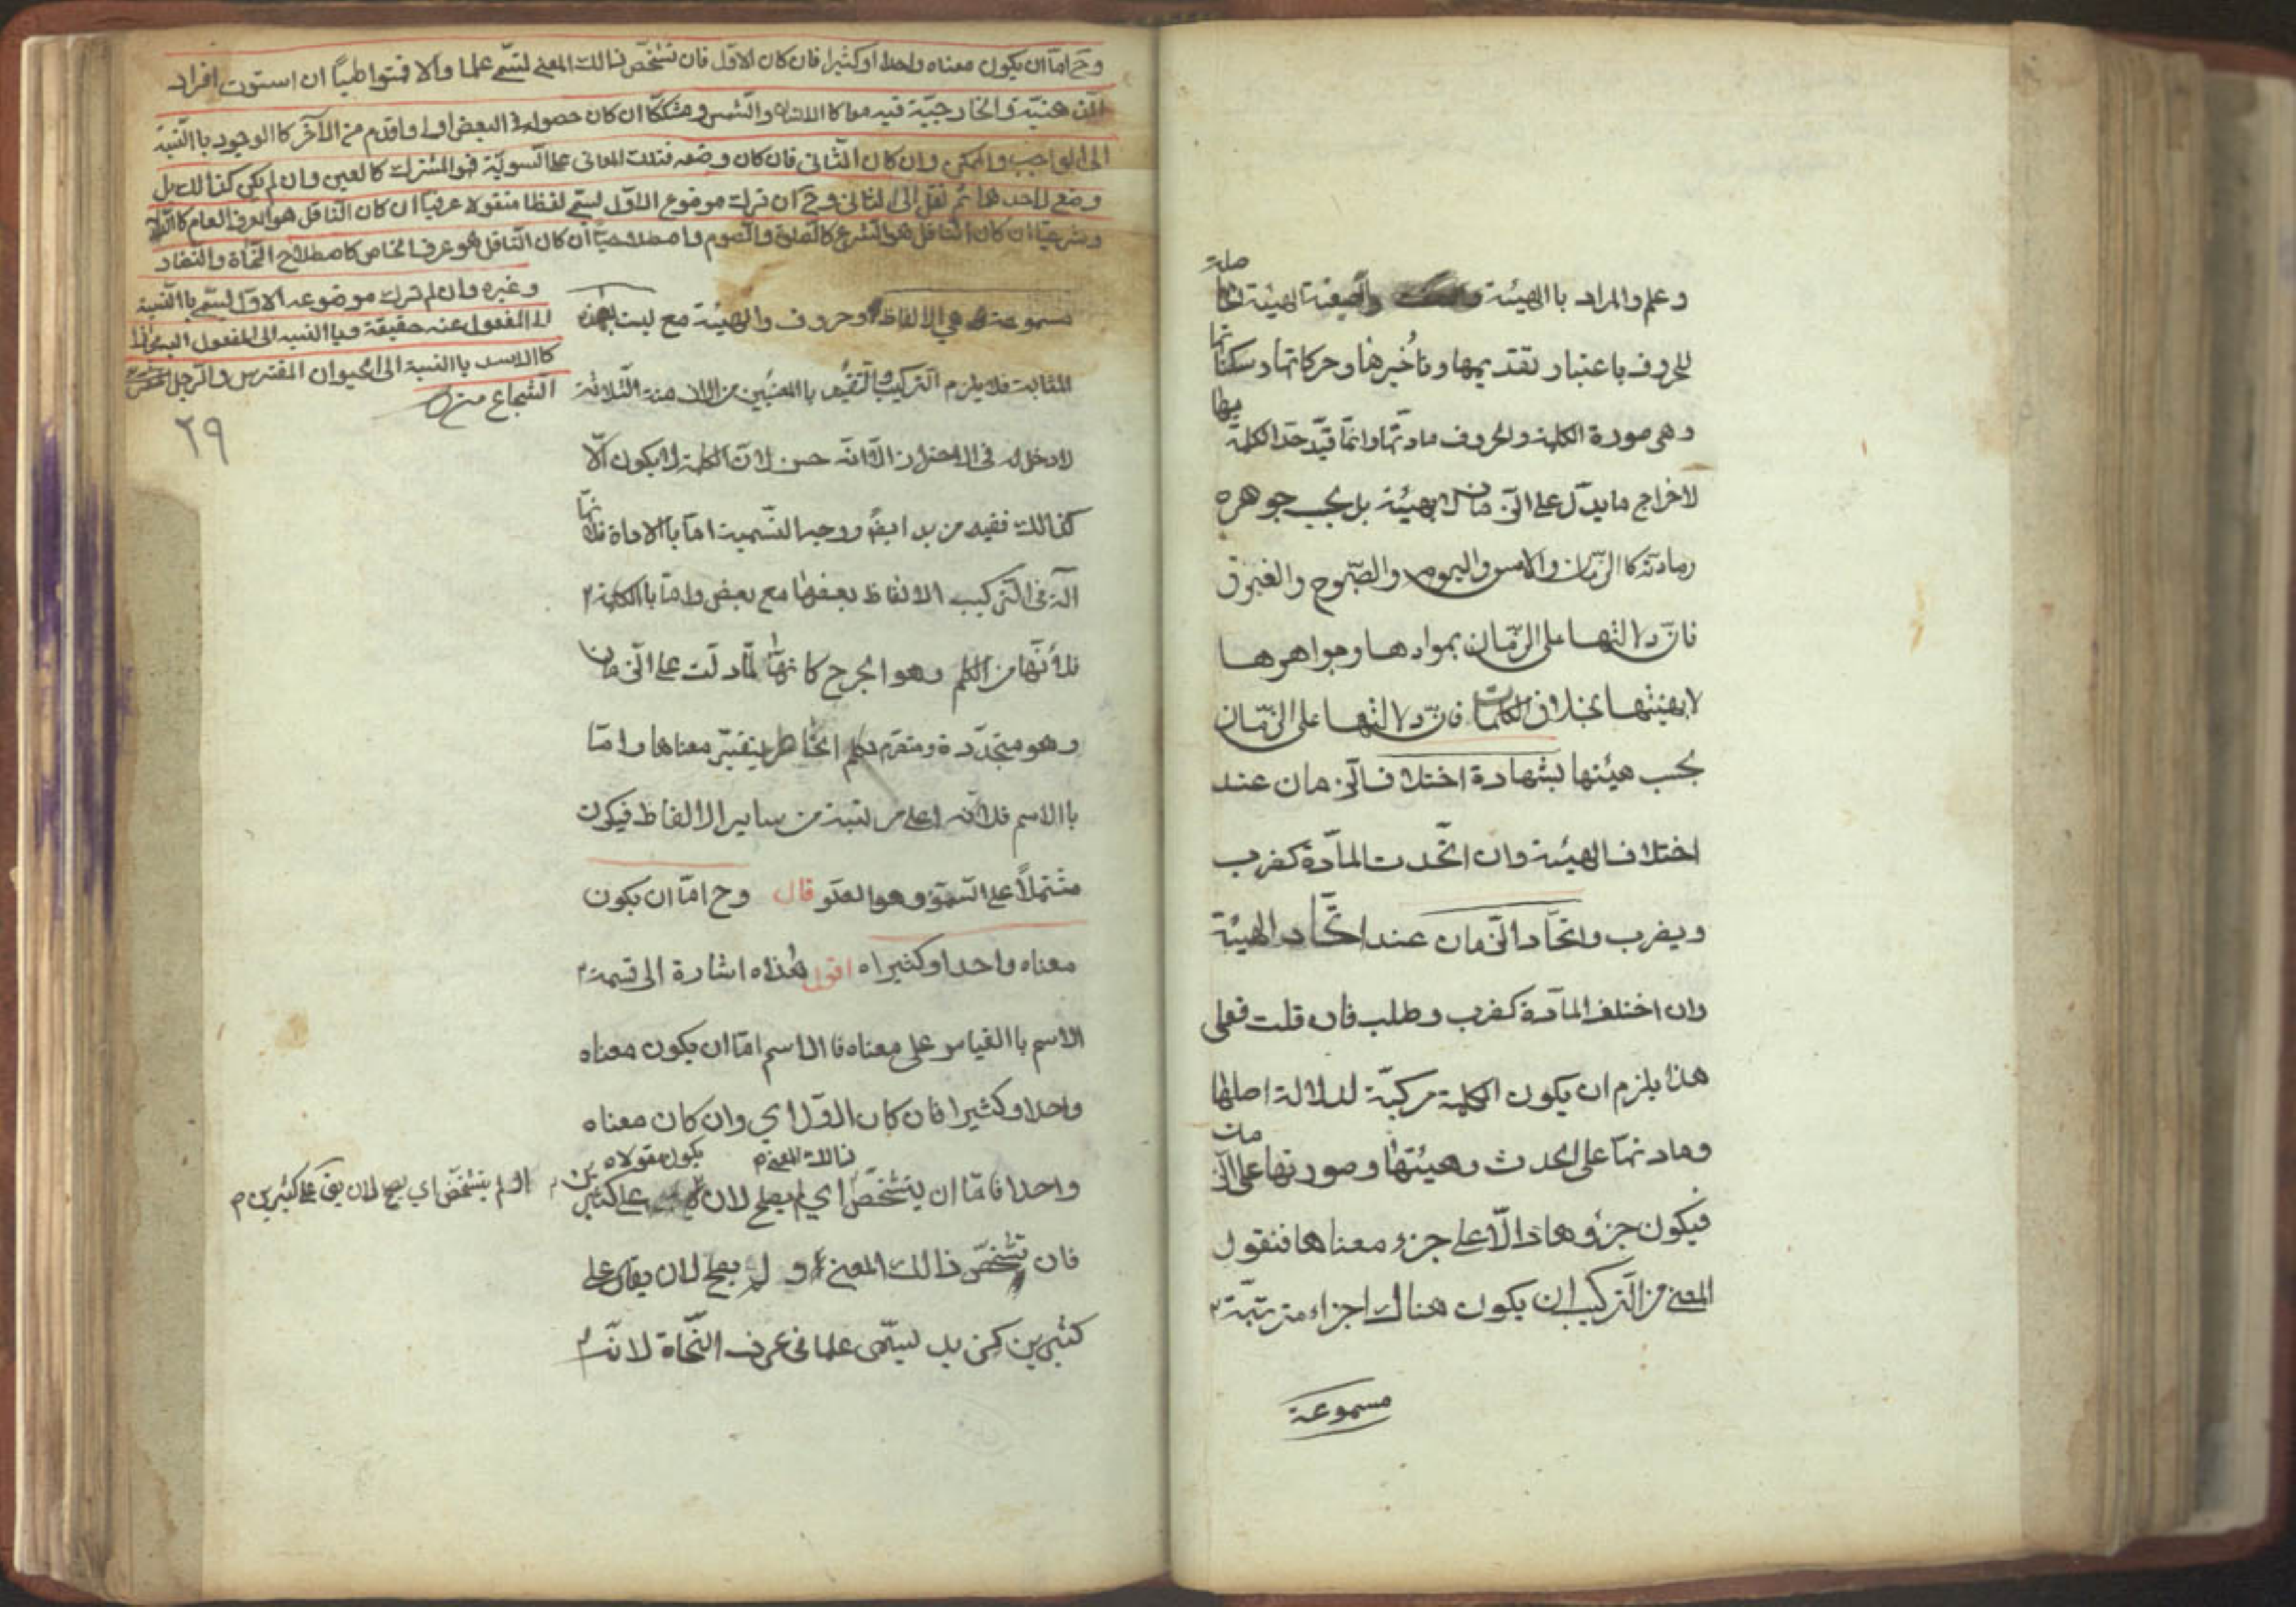 وعلم والمراد باالهيئة والصيغة الهيئة الحا
صلة
للحروف باعتبار تقديمها وتأخيرها وحركاتها وسكنا
تها
وهى صورة الكلمة والحروف مادتها وانما قيد حد الكلمة
بها
لاخراج ما يدل على الزمان لا بهيئته بل بحسب جوهره
ومادته كاالزمان والامس واليوم والصبوح والغبوق
فان دلالتها على الزمان بموادها وجواهرها
لا بهيئتها بخلاف الكلمات فان دلالتها على الزمان
بحسب هيئتها بشهادة اختلاف الزمان عند
اختلاف الهيئة وان اتحدت المادة كضرب
ويضرب واتحاد الزمان عند اتحاد الهيئة
وان اختلف المادة كضرب وطلب فان قلت فعلى
هذا يلزم ان يكون الكلمة مركبة لدلالة اصلها
ومادتها على الحدث وهيئتها وصورتها على الز
مان
فيكون جزؤها دالا على جزء معناها فنقول
المعنى من التركيب ان يكون هناك اجزاء مترتبة
مسموعة
وح اما ان يكون معناه واحدا او كثيرا فان كان الاول فان تشخص ذالك المعنى لسمى علما والا فمتواطيا ان استوت افراد
الذهنية والخارجية فيه كاالانسان والشمس ومشككا ان كان حصوله فى البعض اولى واقدم من الآخر كاالوجود باالنسبة
الى الواجب والممكن وان كان الثانى فان كان وضعه لتلك المعانى على السوية فهو المشترك كالعين وان لم يكن كذالك بل
وضع لاحدهما ثم نقل الى الثانى وح ان ترك موضوع الاول لسمى لفظا منقولا عرفيا ان كان الناقل هو العرف العام كا
وشرعيا ان كان الناقل هو الشرع كاالصلوة والصوم واصطلاحيا ان كان الناقل هو عرف الخاص كاصطلاح النحاة والنظار
وغيره وان لم تترك موضوعه الاول لسمى باالنسبة
الى المنقول عنه حقيقة وباالنسبه الى المنقول اليه مجازا
كاالاسد باالنسبة الى الحيوان المفترس والرجل
الشجاع متن
٢٩
مسموعة هى الالفاظ وحروف والهيئة مع ليت بهذه
المثابت فلا يلزم التركيب والتقييد باالمعين من الازمنة الثلاثة
لا دخل له فى الاحتراز الا انه حسن لان الكلمة لا يكون الا
كذالك ففيه مزيد ايضا ووجه التسميت اما باالاداة فلا
نها
آلة فى التركيب الالفاظ بعضها مع بعض واما باالكلمة
فلأنها من الكلم وهو الجرح كانها لما دلت على الزمان
وهو متجددة ومتصرم تكلم الخاطر بتغير معناها واما
باالاسم فلانه اعلى مرتبة من ساير الالفاظ فيكون
مشتملا على السمو وهو العلو قال وح اما ان يكون
معناه واحدا او كثيرا ه اقول هذه اشارة الى قسمة
الاسم باالقياس على معناه فاالاسم اما ان يكون معناه
واحدا او كثيرا فان كان الاول اي وان كان معناه
ذالك المعنى
يكون مقولا
واحدا فاما ان يتشخص اي لم يصلح لان على كثيرين
او لم يتشخص اي يصلح لان يق على كثيرين
فان تشخص ذالك المعنى و لم يصلح لان يقال على
كثيرين كزيد ليسمى علما فى عرف النحاة لانه